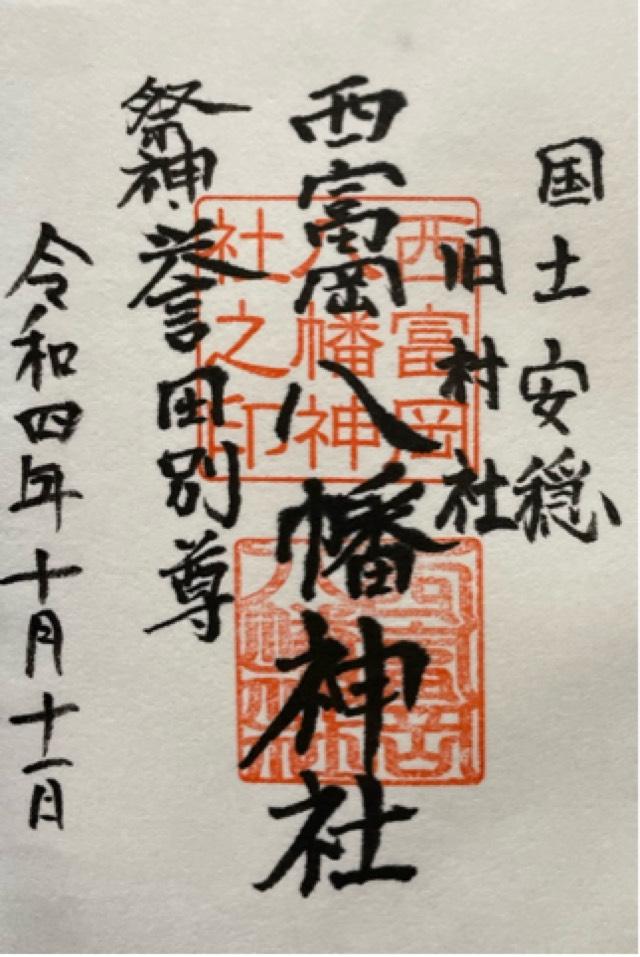 国土安穏
旧村社
西富岡八幡神社
祭神 誉田別尊
令和四年十月十一日
西富岡
八幡神
社之印
西富岡
八幡神社